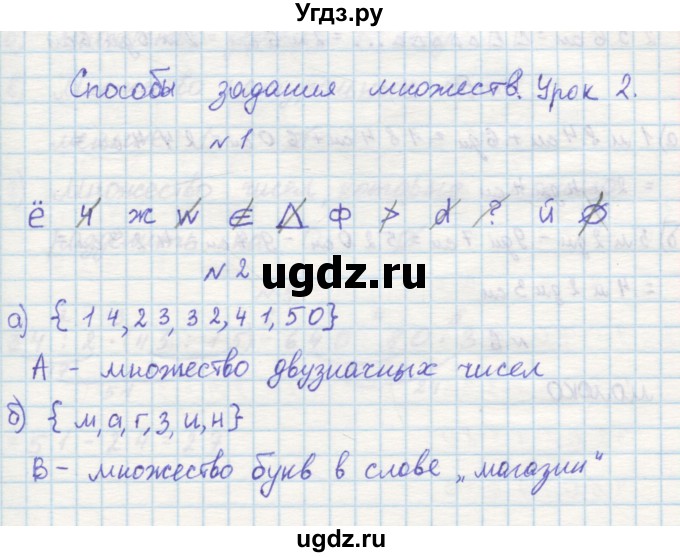 Угдз.ру
Способы задания множеств. Урок 2.
№ 1
Ё Ч Ж W Є Δ Ф > d ? Й
№ 2
ugdz.ru
а) {14, 23, 32, 41, 50}
А - множество двузначных чисел
б) {м, а, г, з, и, н}
В - множество букв в слове „магазин“
ugdz.ru